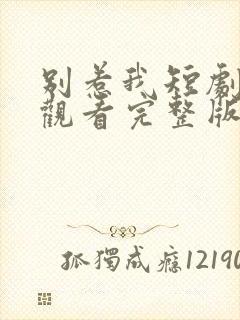 別惹我短劇
觀看完整版
孤獨成癮12190